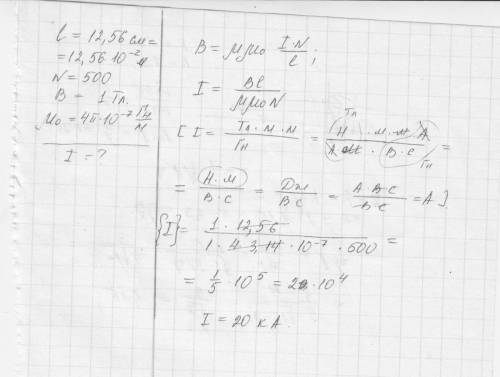 l = 12,56 см =
= 12,56·10⁻² м
N = 500
B = 1 Тл.
μ₀ = 4π·10⁻⁷ Гн/м
I = ?
B = μμ₀ I·N/l ;
I = Bl/μμ₀N
[ I = Тл·м·м/Гн = Н·м·м·А/А·м·В·с =
Тл
Гн
= Н·м/В·с = Дж/В·с = А·В·с/В·с = А ].
{I} = 1·12,56/1·4·3,14·10⁻⁷·500 =
= 1/5 · 10⁵ = 2·10⁴
I = 20 кА.